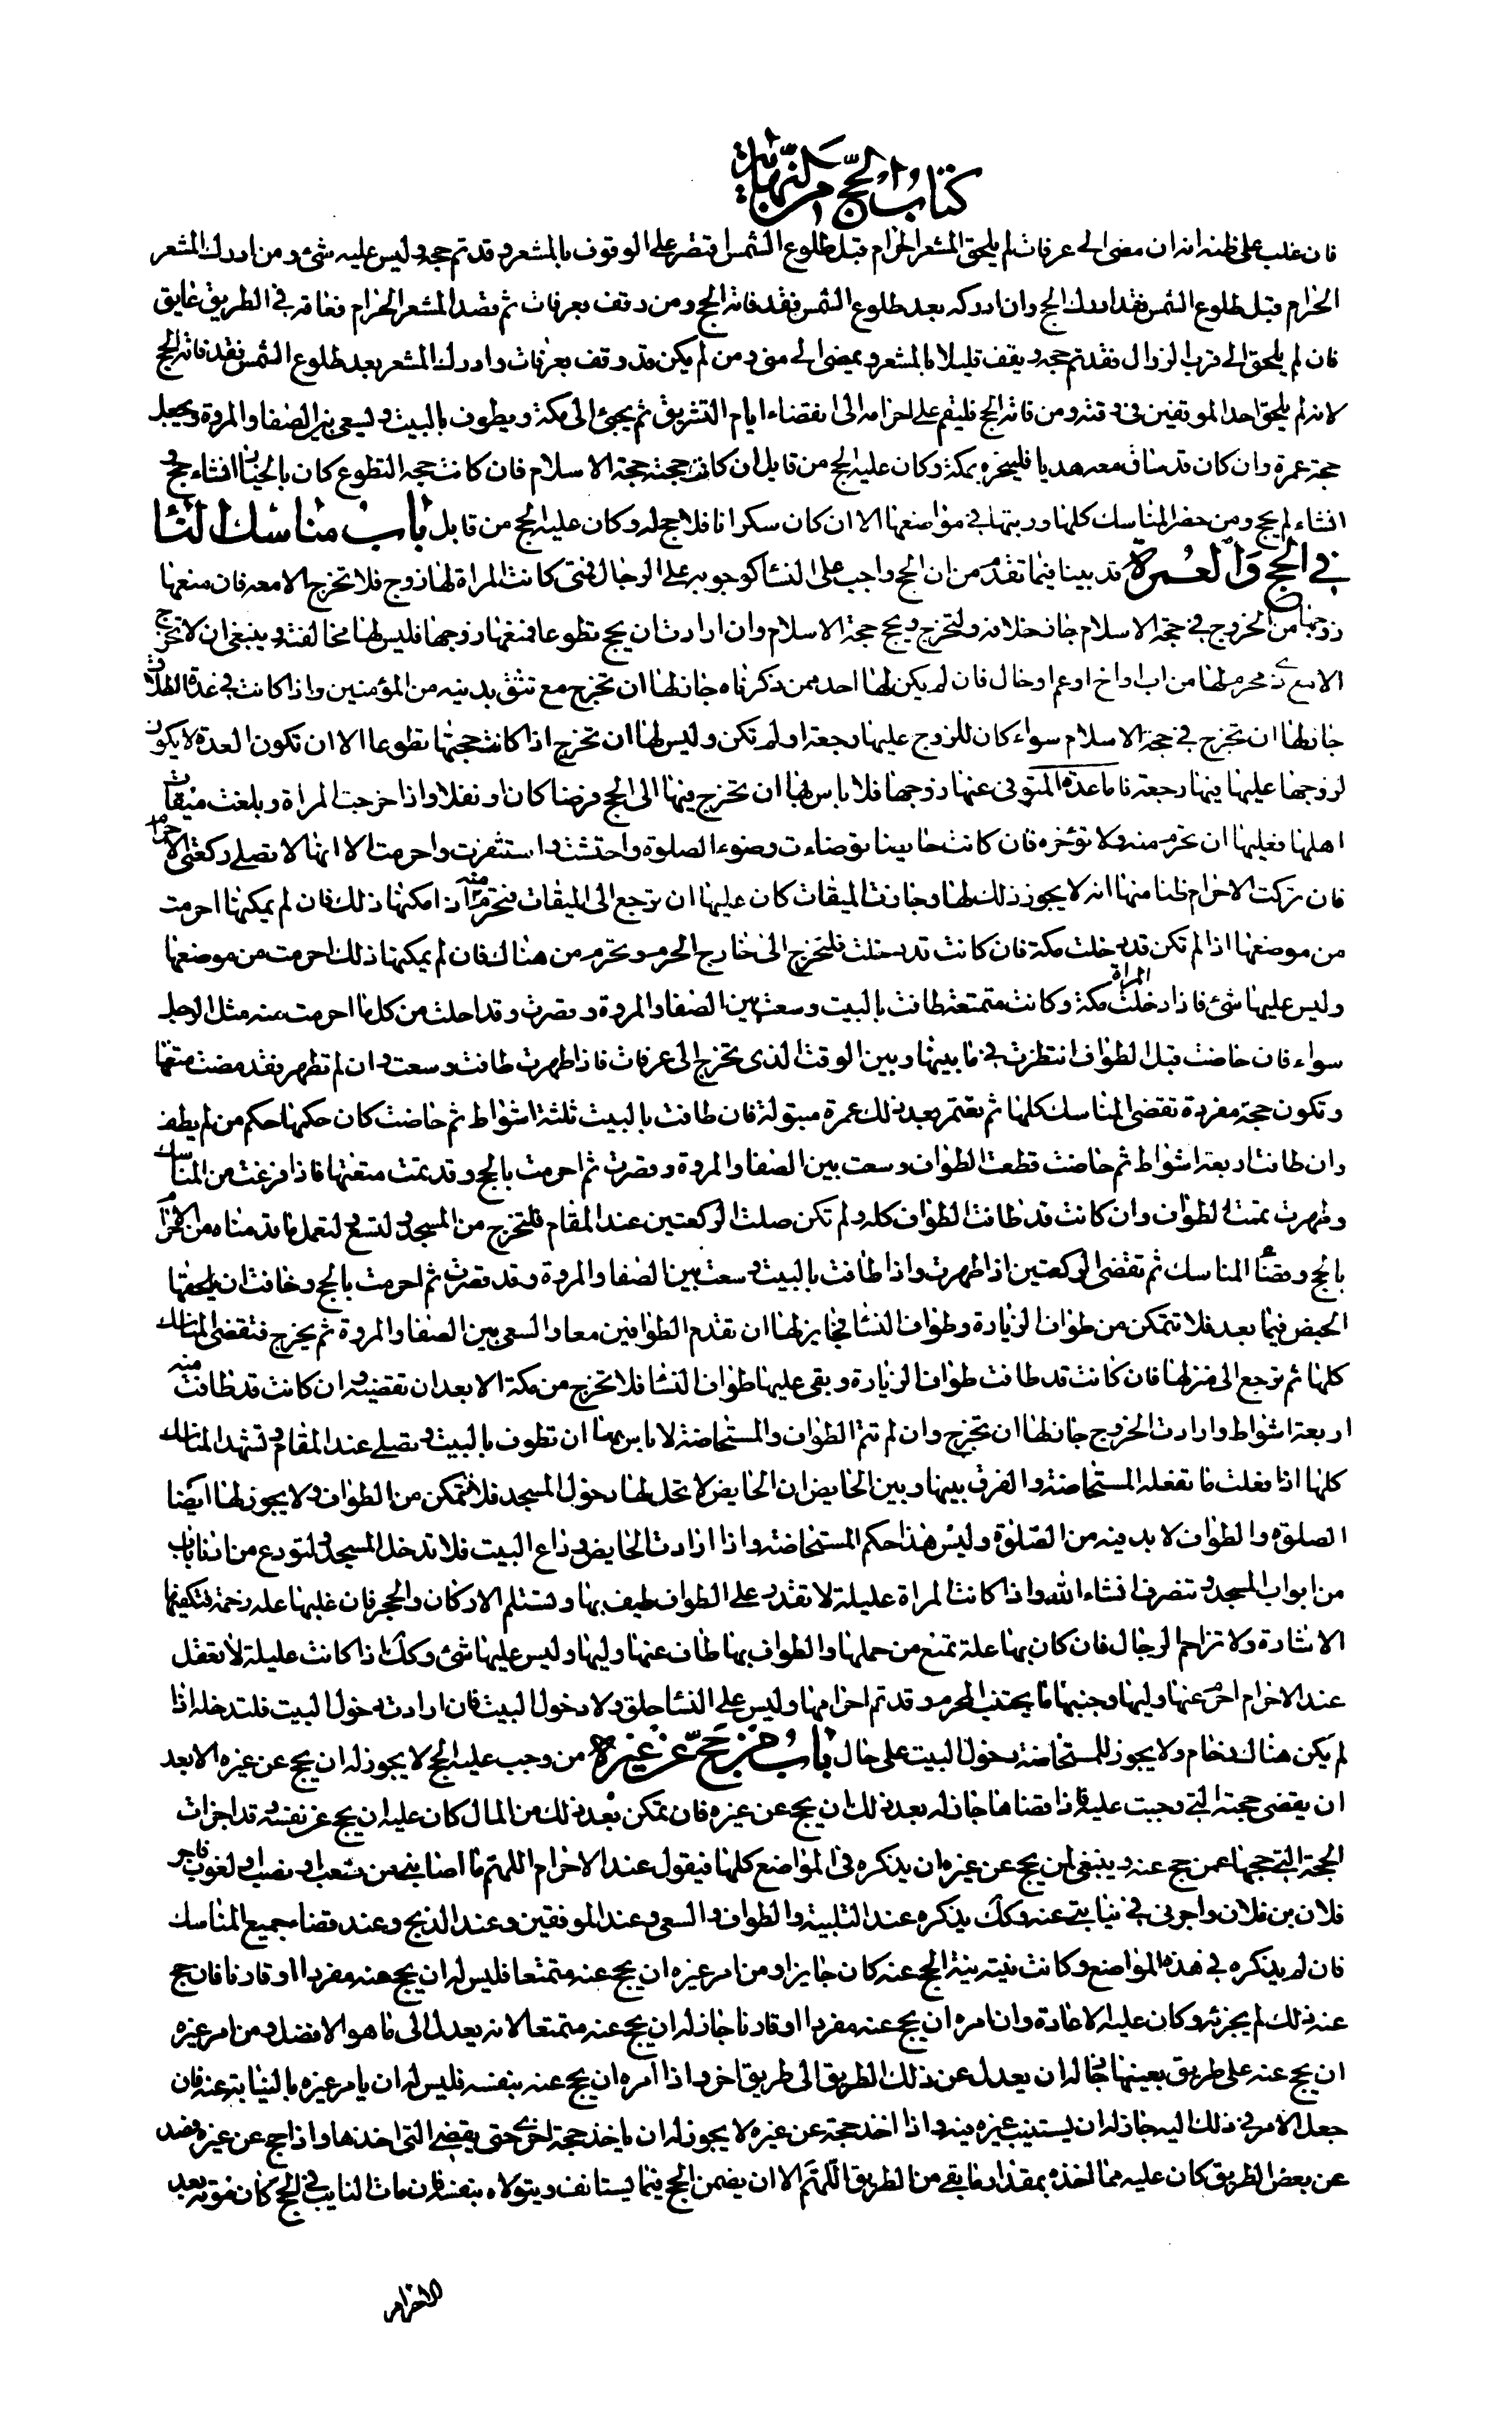 كتاب الحج من النهاية
فان غلب على ظنه انه ان مضى الى عرفات لم يلحق المشعر الحرام قبل طلوع الشمس اقتصر على الوقوف بالمشعر و قد تم حجه و ليس عليه شئ و من ادرك المشعر
الحرام قبل طلوع الشمس فقد ادرك الحج وان ادركه بعد طلوع الشمس فقد فاته الحج و من وقف بعرفات ثم قصد المشعر الحرام فعاقه في الطريق عايق
فان لم يلحق الى قرب الزوال فقد تم حجه و يقف قليلا بالمشعر و يمضى الى منى و من لم يكن قد وقف بعرفات و ادرك المشعر بعد طلوع الشمس فقد فاته الحج
لانه لم يلحق احد الموقفين في وقته و من فاته الحج فليقم على احرامه الى انقضاء ايام التشريق ثم يجئ الى مكة و يطوف بالبيت و ليسعى بين الصفا و المروة و يجعل
حجته عمرة وان كان قد ساق معه هديا فلينحره بمكة و كان عليه الحج من قابل ان كانت حجته حجة الاسلام فان كانت حجه التطوع كان بالخيار ان شاء حج و
ان شاء لم يحج و من حضر المناسك كلها و رتبها في مواضعها الا ان كان سكرانا فلا حج له و كان عليه الحج من قابل باب مناسك النسا
في الحج والعمرة قد بينا فيما تقدم من ان الحج واجب على النسا كوجوبه على الرجال فمتى كانت المراة لها زوج فلا تخرج الا معه فان منعها
زوجها من الخروج في حجة الاسلام جاز خلافه و لتخرج و تحج حجة الاسلام وان ارادت ان تحج تطوعا فمنعها زوجها فليس لها مخالفته و ينبغي ان لا تخرج
الا مع ذي محرم لها من اب او اخ او عم او خال فان لم يكن لها احد ممن ذكرناه جاز لها ان تخرج مع من تثق بدينه من المؤمنين و اذا كانت في عدة الطلاق
جاز لها ان تخرج في حجة الاسلام سواء كان للزوج عليها رجعة او لم تكن و ليس لها ان تخرج اذا كانت حجتها تطوعا الا ان تكون العدة لا يكون
لزوجها عليها فيها رجعة فاما عدة المتوفى عنها زوجها فلا باس لها ان تخرج فيها الى الحج فرضا كان او نفلا و اذا خرجت المراة و بلغت ميقات
اهلها فعليها ان تحرم منه و لا تؤخره فان كانت حايضا توضات وضوء الصلوة و احتشت و استثفرت و احرمت الا انها لا تصلي ركعتي الاحرام
فان تركت الاحرام ظنا منها انه لا يجوز ذلك لها و جازت الميقات كان عليها ان ترجع الى الميقات فتحرم منه اذا امكنها ذلك فان لم يمكنها احرمت
من موضعها اذا لم تكن قد دخلت مكة فان كانت قد دخلت فلتخرج الى خارج الحرم و تحرم من هناك فان لم يمكنها ذلك احرمت من موضعها
و ليس عليها شئ فاذا دخلت المراة مكة و كانت متمتعة طافت بالبيت و سعت بين الصفا و المروة و قصرت و قد احلت من كل ما احرمت منه مثل الرجل
سواء فان حاضت قبل الطواف انتظرت في ما بينها و بين الوقت الذي تخرج الى عرفات فاذا طهرت طافت و سعت و ان لم تطهر فقد مضت متعتها
و تكون حجة مفردة تقضى المناسك كلها ثم تعتمر بعد ذلك عمرة مبتولة فان طافت بالبيت ثلثة اشواط ثم حاضت كان حكمها حكم من لم يطف
وان طافت اربعة اشواط ثم حاضت قطعت الطواف و سعت بين الصفا و المروة و قصرت ثم احرمت بالحج و قد تمت متعتها فاذا فرغت من المناسك
و طهرت تممت الطواف وان كانت قد طافت الطواف كله و لم تكن صلت الركعتين عند المقام فلتخرج من المسجد و لتسع و لتعمل ما قدمناه من الاحرام
بالحج و قضاء المناسك ثم تقضى الركعتين اذا طهرت و اذا طافت بالبيت و سعت بين الصفا و المروة و قد قصرت ثم احرمت بالحج و خافت ان يلحقها
الحيض فيما بعد فلا تتمكن من طواف الزيارة و طواف النسا فجايز لها ان تقدم الطوافين معا و السعى بين الصفا و المروة ثم يخرج فتقضى المناسك
كلها ثم ترجع الى منزلها فان كانت قد طافت طواف الزيارة و بقى عليها طواف النسا فلا تخرج من مكة الا بعد ان تقضيه و ان كانت قد طافت منه
اربعة اشواط و ارادت الخروج جاز لها ان تخرج و ان لم تتم الطواف و المستحاضة لا باس بها ان تطوف بالبيت و تصلي عند المقام و تشهد المناسك
كلها اذا فعلت ما تفعله المستحاضة و الفرق بينها و بين الحايض ان الحايض لا تحل لها دخول المسجد فلا تتمكن من الطواف و لا يجوز لها ايضا
الصلوة و الطواف لا بد فيه من الصلوة و ليس هذا حكم المستحاضة و اذا ارادت الحايض وداع البيت فلا تدخل المسجد و لتودع من ادنا باب
من ابواب المسجد و تنصرف انشاء الله و اذا كانت المراة عليلة لا تقدر على الطواف طيف بها و تستلم الاركان و الحجر فان غلبها عليه زحمة فتكفيها
الاشارة و لا تزاحم الرجال فان كان بها علة تمنع من حملها و الطواف بها طاف عنها وليها و ليس عليها شئ و كك اذا كانت عليلة لا تعقل
عند الاحرام احرم عنها وليها و جنبها ما يجتنب المحرم و قد تم احرامها و ليس على النسا حلق و لا دخول البيت فان ارادت دخول البيت فلتدخله اذا
لم يكن هناك زحام و لا يجوز للمستحاضة دخول البيت على حال باب من حج عن غيره من وجب عليه الحج لا يجوز له ان يحج عن غيره الا بعد
ان يقضى حجته التي وجبت عليه فاذا قضاها جاز له بعد ذلك ان يحج عن غيره فان تمكن بعد ذلك من المال كان عليه ان يحج عن نفسه و قد اجزات
الحجة التي حجها عمن حج عنه و ينبغي لمن يحج عن غيره ان يذكره في المواضع كلها فيقول عند الاحرام اللهم ما اصابني من تعب او نصب او لغوب فاجر
فلان بن فلان و اجرني في نيابتي عنه و كك يذكره عند التلبية و الطواف و السعى و عند الموقفين و عند الذبح و عند قضاء جميع المناسك
فان لم يذكره في هذه المواضع و كانت نيته نية الحج عنه كان جايزا و من امر غيره ان يحج عنه متمتعا فليس له ان يحج عنه مفردا او قارنا فان حج
عنه ذلك لم يجزئه و كان عليه الاعادة و ان امره ان يحج عنه مفردا او قارنا جاز له ان يحج عنه متمتعا لانه يعدل الى ما هو الافضل و من امر غيره
ان يحج عنه على طريق بعينها جاز له ان يعدل عن ذلك الطريق الى طريق اخر و اذا امره ان يحج عنه بنفسه فليس له ان يامر غيره بالنيابة عنه فان
جعل الامر في ذلك اليه جاز له ان يستنيب غيره فيه و اذا اخذ حجة عن غيره لا يجوز له ان ياخذ حجة اخرى حتى يقضي التي اخذها و اذا حج عن غيره فصد
عن بعض الطريق كان عليه مما اخذه بمقدار ما بقي من الطريق اللهم الا ان يضمن الحج فيما يستانف و يتولاه بنفسه فان مات النايب في الحج كان موته بعد
الاحرام